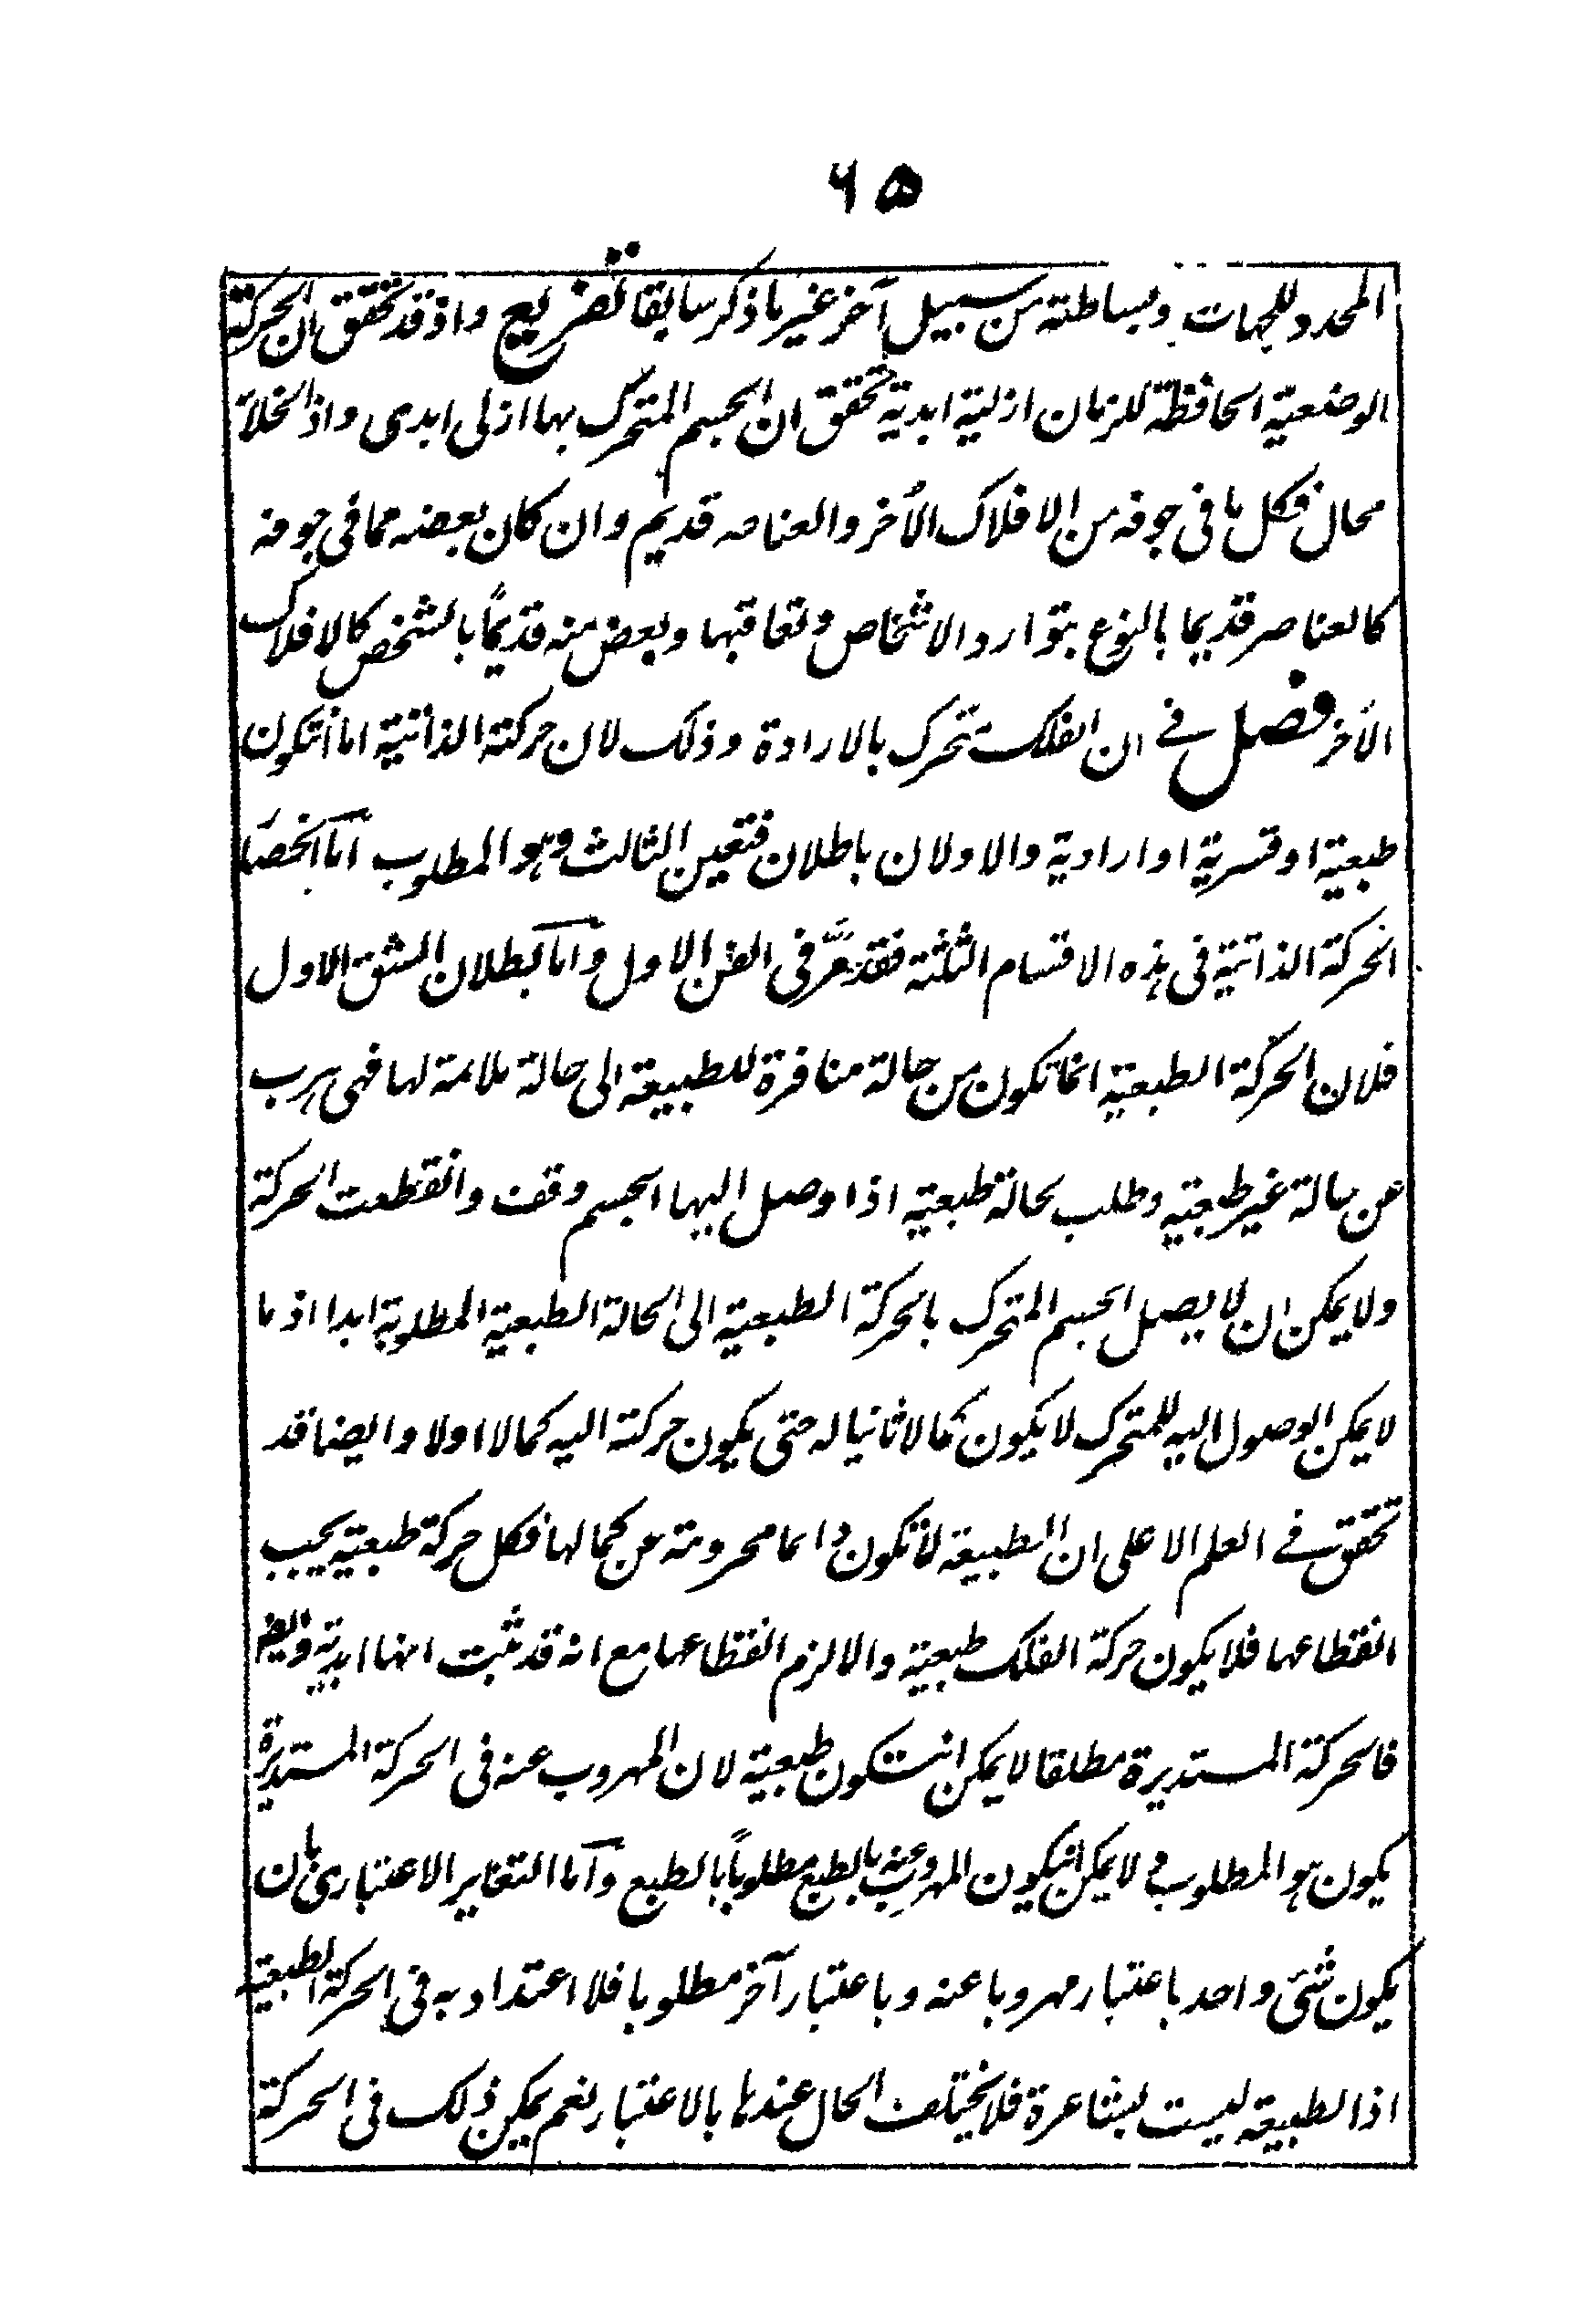 ٦٥
المحدد للجهات وبساطته من سبيل آخر غير ما ذكر سابقا تفريع واذ قد تحقق ان الحركة
الوضعية الحافظة للزمان ازلية ابدية تحقق ان الجسم المتحرك بها ازلى ابدى واذ الخلاء
محال فكل ما فى جوفه من الافلاك الأخر والعناصر قديم وان كان بعضه مما فى جوفه
كالعناصر قديما بالنوع بتوارد الاشخاص وتعاقبها وبعض منه قديمًا بالشخص كالافلاك
الأخر فصل في ان الفلك متحرك بالارادة وذلك لان حركته الذاتية اما انتكون
طبعية او قسرية او ارادية والاولان باطلان فتعين الثالث وهو المطلوب اما انحصار
الحركة الذاتية فى هذه الاقسام الثلثة فقد مرَّ فى الفن الاول وأما بطلان الشق الاول
فلان الحركة الطبعية انما تكون من حالة منافرة للطبيعة الى حالة ملائمة لها فهى هرب
عن حالة غير طبعية وطلب لحالة طبعية اذا وصل اليها الجسم وقف وانقطعت الحركة
ولا يمكن ان لا يصل الجسم المتحرك بالحركة الطبعية الى الحالة الطبعية المطلوبة ابدا اذ ما
لا يمكن الوصول اليه للمتحرك لا يكون كمالا ثانيا له حتى يكون حركته اليه كمالا اولا وايضا قد
تحقق في العلم الاعلى ان الطبيعة لا تكون دائما محرومة عن كمالها فكل حركة طبعية يجب
انقطاعها فلا يكون حركة الفلك طبعية والا لزم انقطاعها مع انه قد ثبت انها ابدية وايضا
فالحركة المستديرة مطلقا لا يمكن انتكون طبعية لان المهروب عنه فى الحركة المستديرة
يكون هو المطلوب ولا يمكن انيكون المهروب عنه بالطبع مطلوبًا بالطبع وأما التغاير الاعتبارى بان
يكون شئ واحد باعتبار مهروبا عنه وباعتبار آخر مطلوبا فلا اعتداد به فى الحركة الطبعية
اذ الطبيعة ليست بشاعرة فلا يختلف الحال عندها بالاعتبار نعم يمكن ذلك فى الحركة